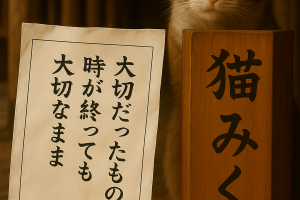 大切だったもの
時が終っても
大切なまま
猫みく